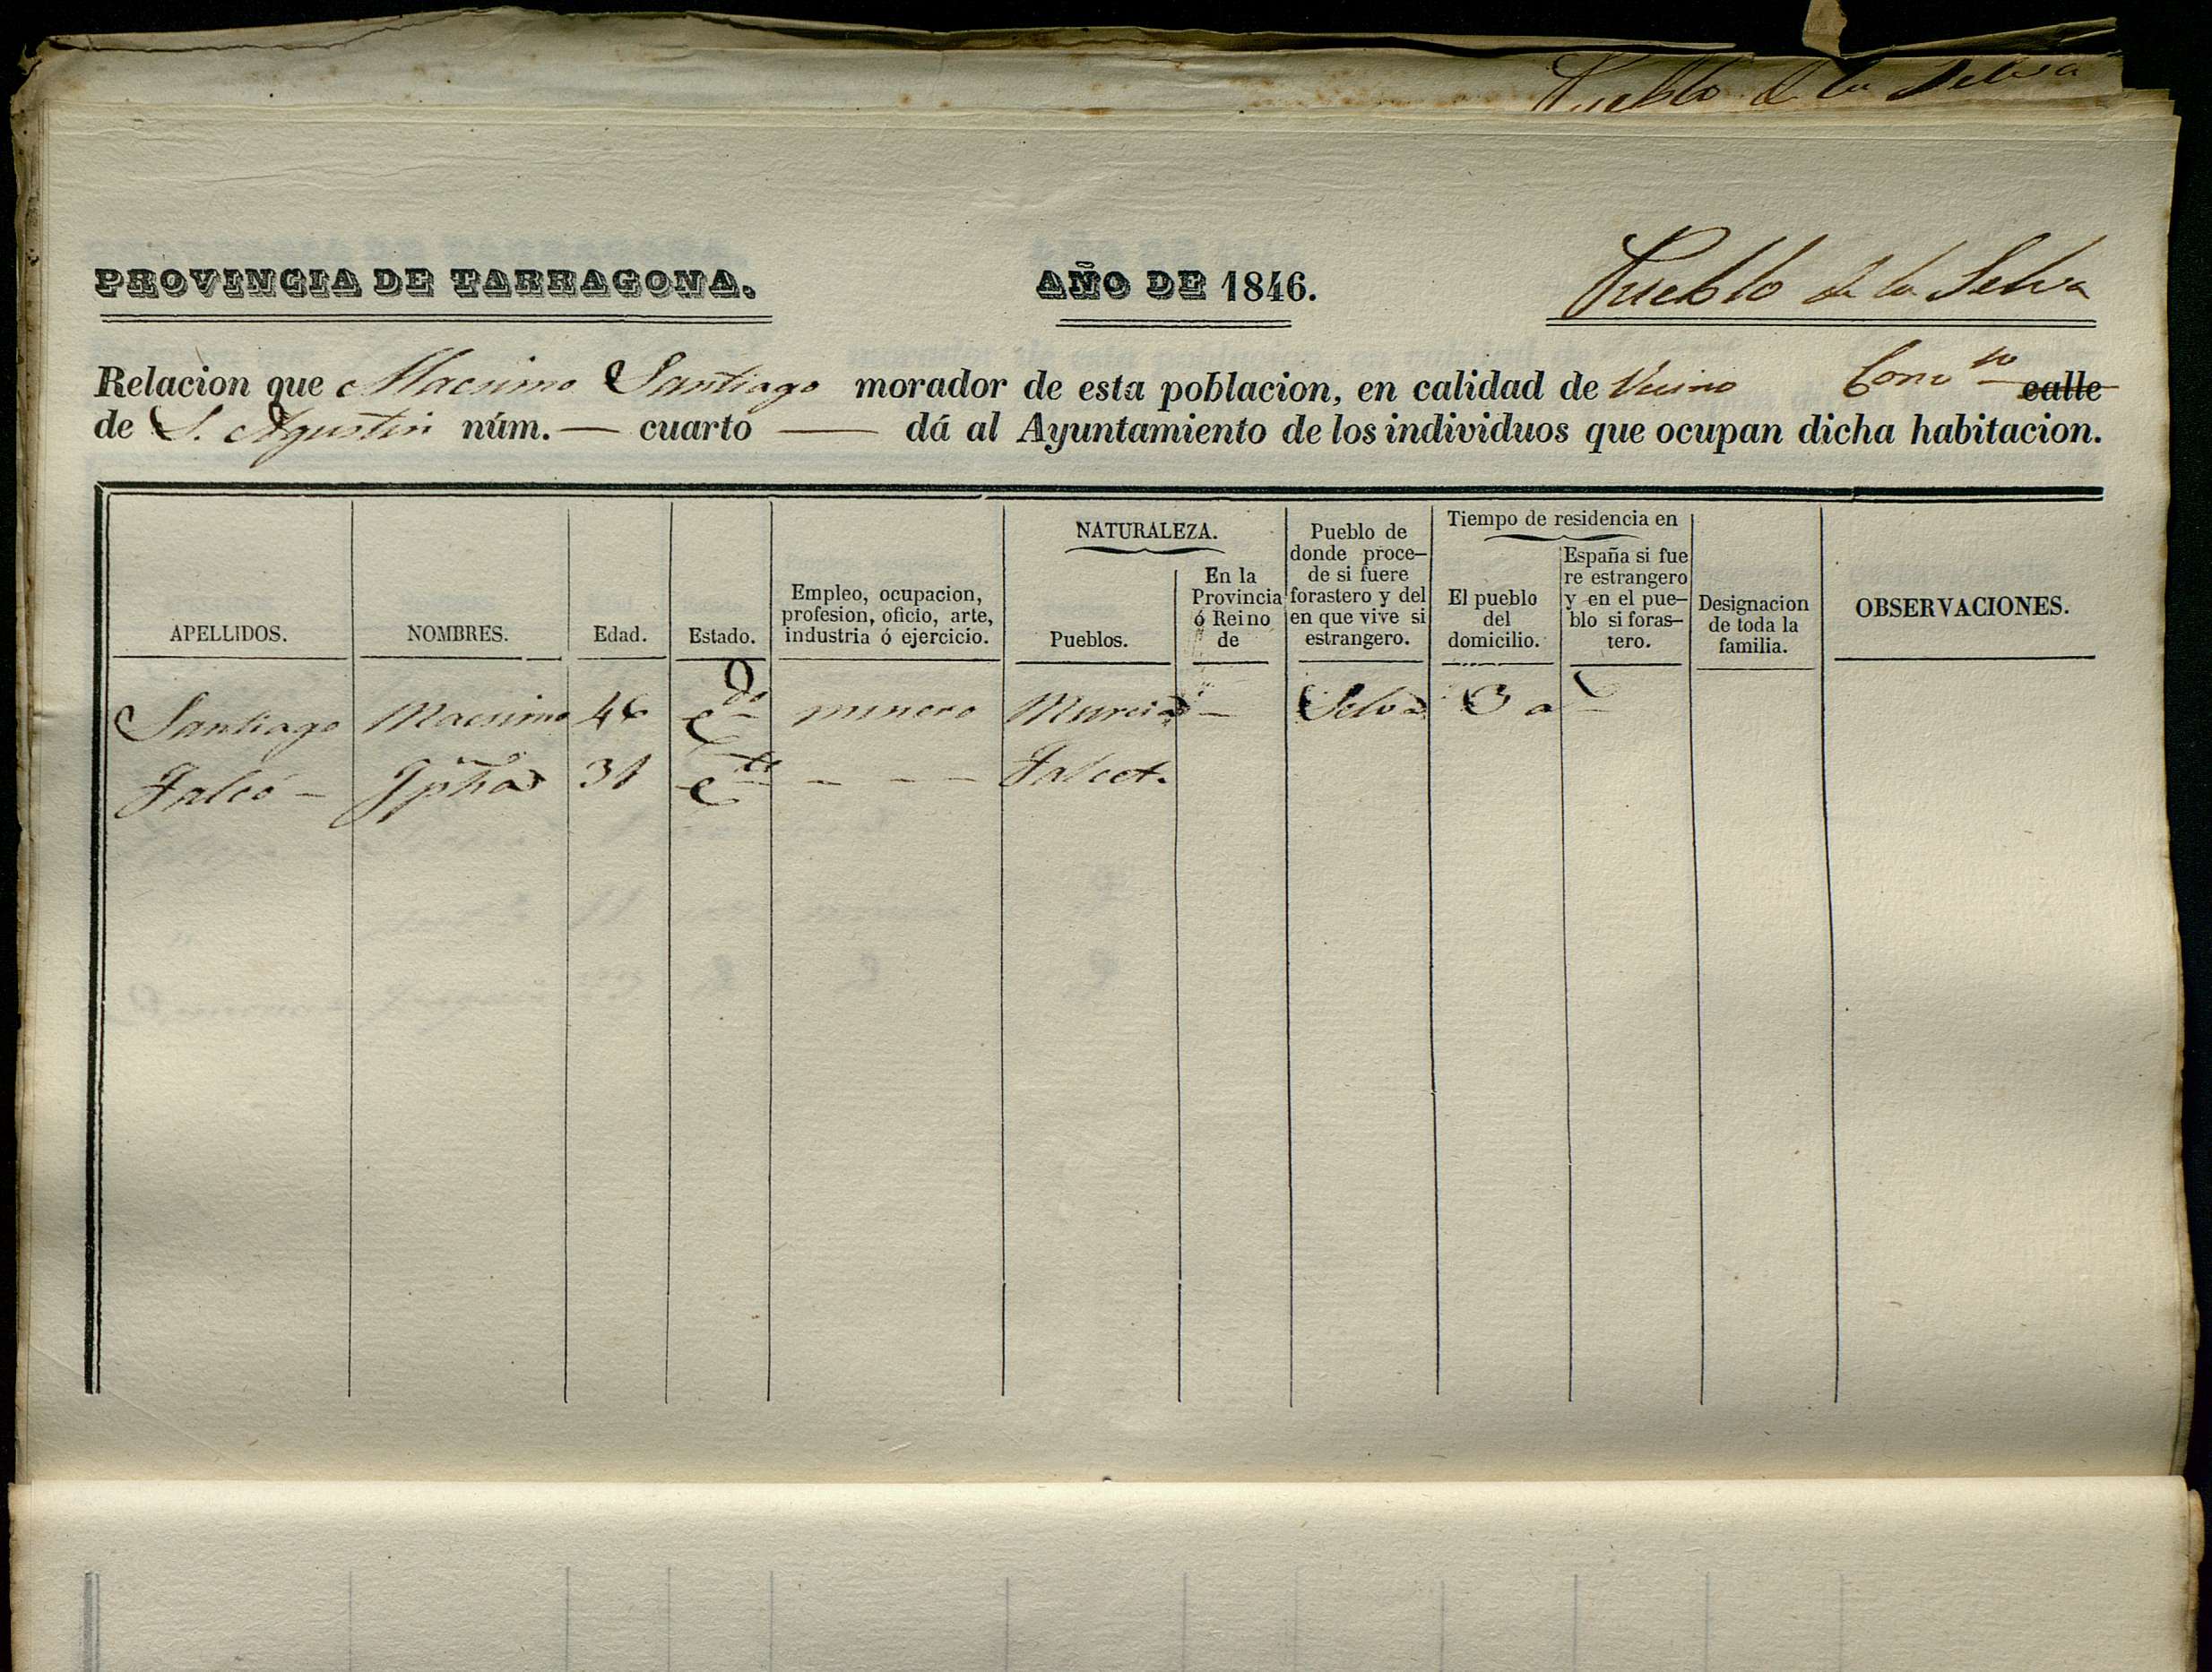 Pueblo de la Selva
PROVINCIA DE TARRAGONA.
AÑO DE 1846.
Pueblo de la Selva
Relacion que Macsimo Santiago morador de esta poblacion, en calidad de Vecino Conv.to calle
de S. Agustin núm. — cuarto — dá al Ayuntamiento de los individuos que ocupan dicha habitacion.
APELLIDOS.
NOMBRES.
Edad.
Estado.
Empleo, ocupacion,
profesion, oficio, arte,
industria ó ejercicio.
NATURALEZA.
Pueblos.
En la
Provincia
ó Reino
de
Pueblo de
donde proce-
de si fuere
forastero y del
en que vive si
estrangero.
Tiempo de residencia en
El pueblo
del
domicilio.
España si fue
re estrangero
y en el pue-
blo si foras-
tero.
Designacion
de toda la
familia.
OBSERVACIONES.
Santiago Macsimo 46 C.do minero Murcia — Selva 3 a
Falcó — Jpha 31 C.da — — — Falcet.